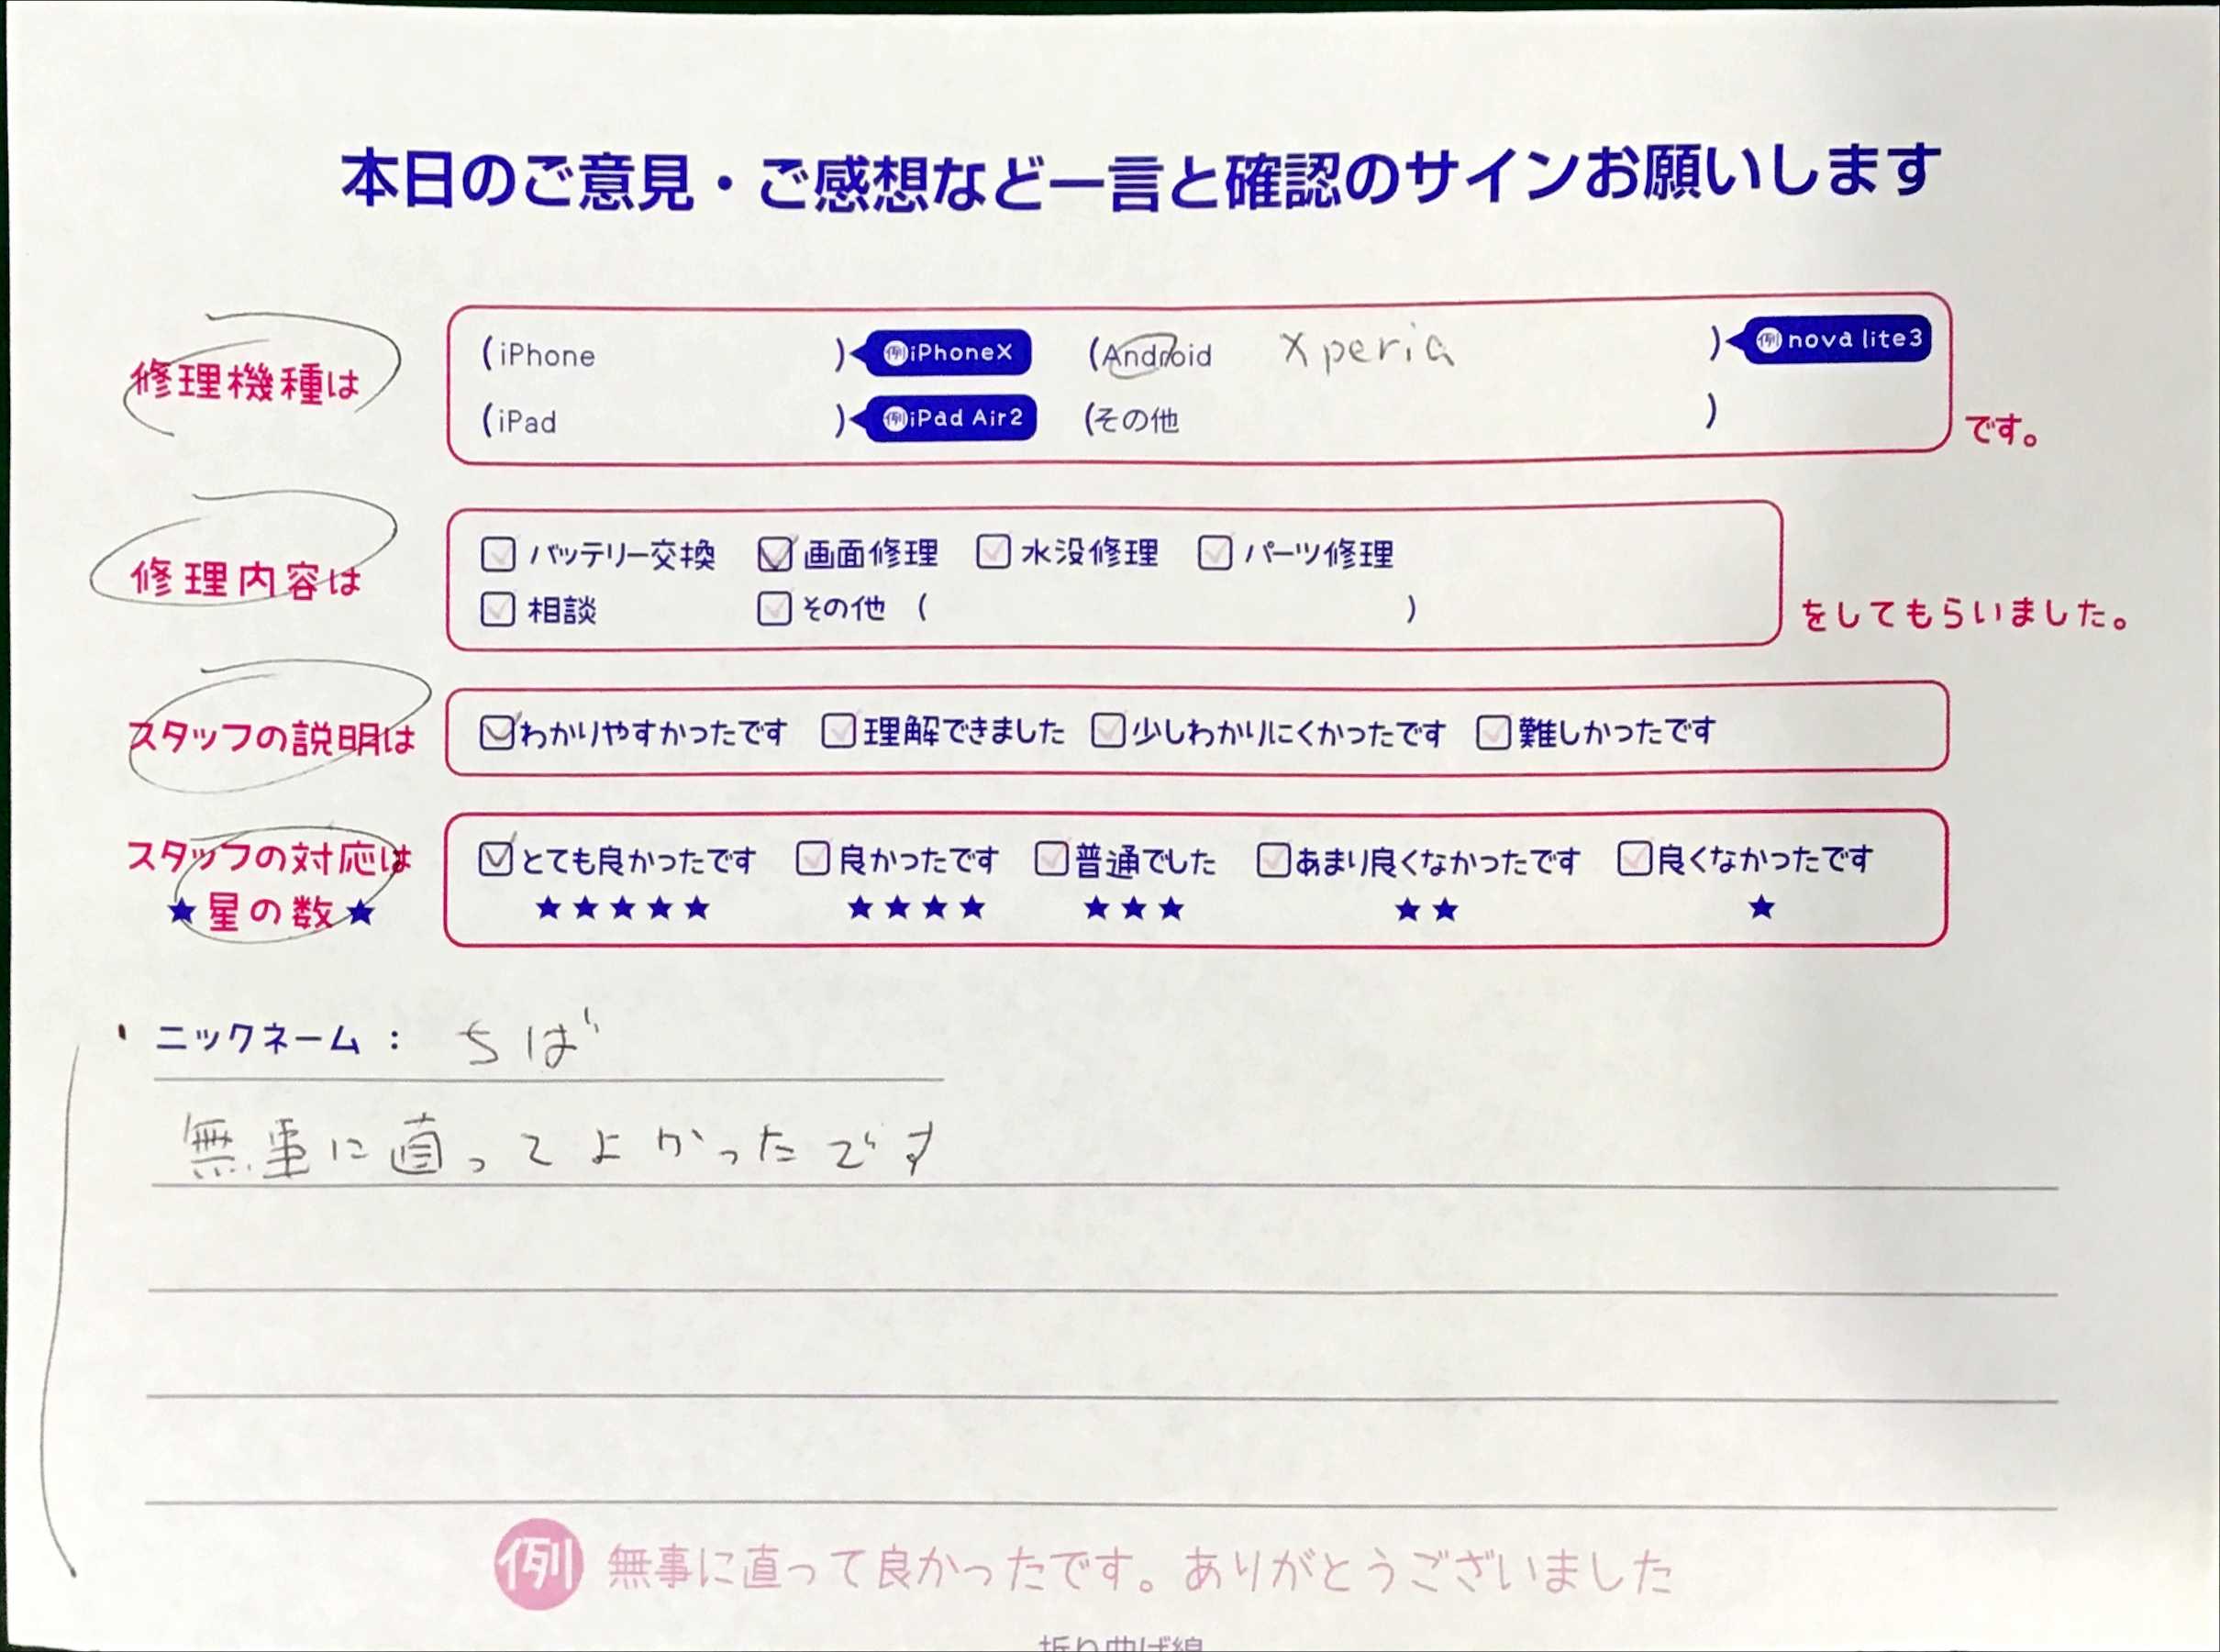 本日のご意見・ご感想など一言と確認のサインお願いします
修理機種は
(iPhone ) 例iPhoneX (Android Xperia ) 例nova lite3
(iPad ) 例iPad Air2 (その他 )
です。
修理内容は
バッテリー交換 画面修理 水没修理 パーツ修理
相談 その他 ( )
をしてもらいました。
スタッフの説明は
わかりやすかったです 理解できました 少しわかりにくかったです 難しかったです
スタッフの対応は
★星の数★
とても良かったです 良かったです 普通でした あまり良くなかったです 良くなかったです
★★★★★ ★★★★ ★★★ ★★ ★
ニックネーム : ちば
無事に直ってよかったです
例 無事に直って良かったです。ありがとうございました
折り曲げ線